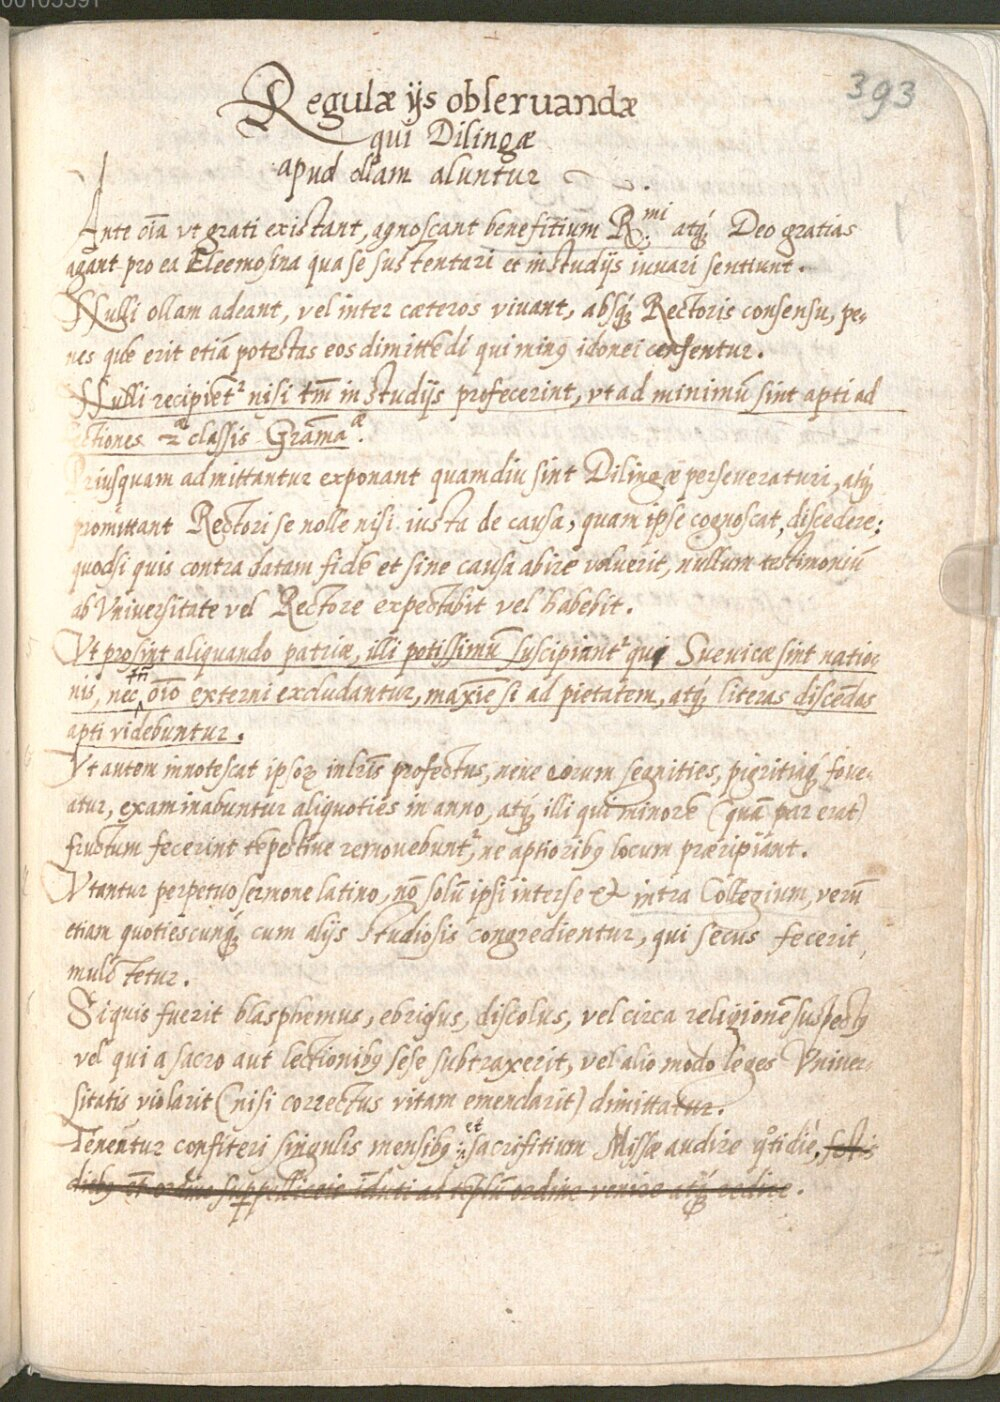 00105591
393
Regulæ ijs obseruandæ
qui Dilingæ
apud ollam aluntur
Ante oīa vt grati existant, agnoscant benefitium R.mi atq́; Deo gratias
agant pro ea Eleemosina qua se sustentari et in studijs iuuari sentiunt.
Nulli ollam adeant, vel inter cæteros viuant, absq́; Rectoris consensu, pe-
nes quē erit etiā potestas eos dimittēdi qui minꝯ idonei censentur.
Nulli recipiēt² nisi tm̄ in studijs profecerint, vt ad minimū sint apti ad
lectiones 2æ classis Grāmaæ.
Priusquam admittantur exponant quamdiu sint Dilingæ perseueraturi, atq́;
promittant Rectori se nolle nisi iusta de causa, quam ipse cognoscat, discedere;
quodsi quis contra datam fidē et sine causa abire voluerit, nullum testimoniū
ab Vniuersitate vel Rectore expectabit vel habebit.
Vt prosint aliquando patriæ, illi potissimū suscipiant² qui Sueuicæ sint natio-
nis, nec tn̄ oīo externi excludantur, maxīe si ad pietatem, atq́; literas discēdas
apti videbuntur.
Vt autem innotescat ipsoꝝ in lr̄is profectus, neue eorum segnities, pigritiaq́; foue-
atur, examinabuntur aliquoties in anno, atq́; illi qui minorē (quā par erat)
fructum fecerint tēpestiue remouebunt², ne aptioribꝯ locum præripiant.
Vtantur perpetuo sermone latino, nō solū ipsi inter se & intra Collegium, verū
etiam quotiescunq́; cum alijs studiosis congredientur, qui secus fecerit,
mulctetur.
Siquis fuerit blasphemus, ebriosus, discolus, vel circa religionē suspectꝯ
vel qui a sacro aut lectionibꝯ sese subtraxerit, vel alio modo leges Vniuer-
sitatis violarit (nisi correctus vitam emendarit) dimittatur.
Tenentur confiteri singulis mensibꝯ: et sacrifitium Missæ audire qͦtidie, festis
diebꝯ et ordine suppelliceis īduti ad tēplū ordine venire atq́; redire.